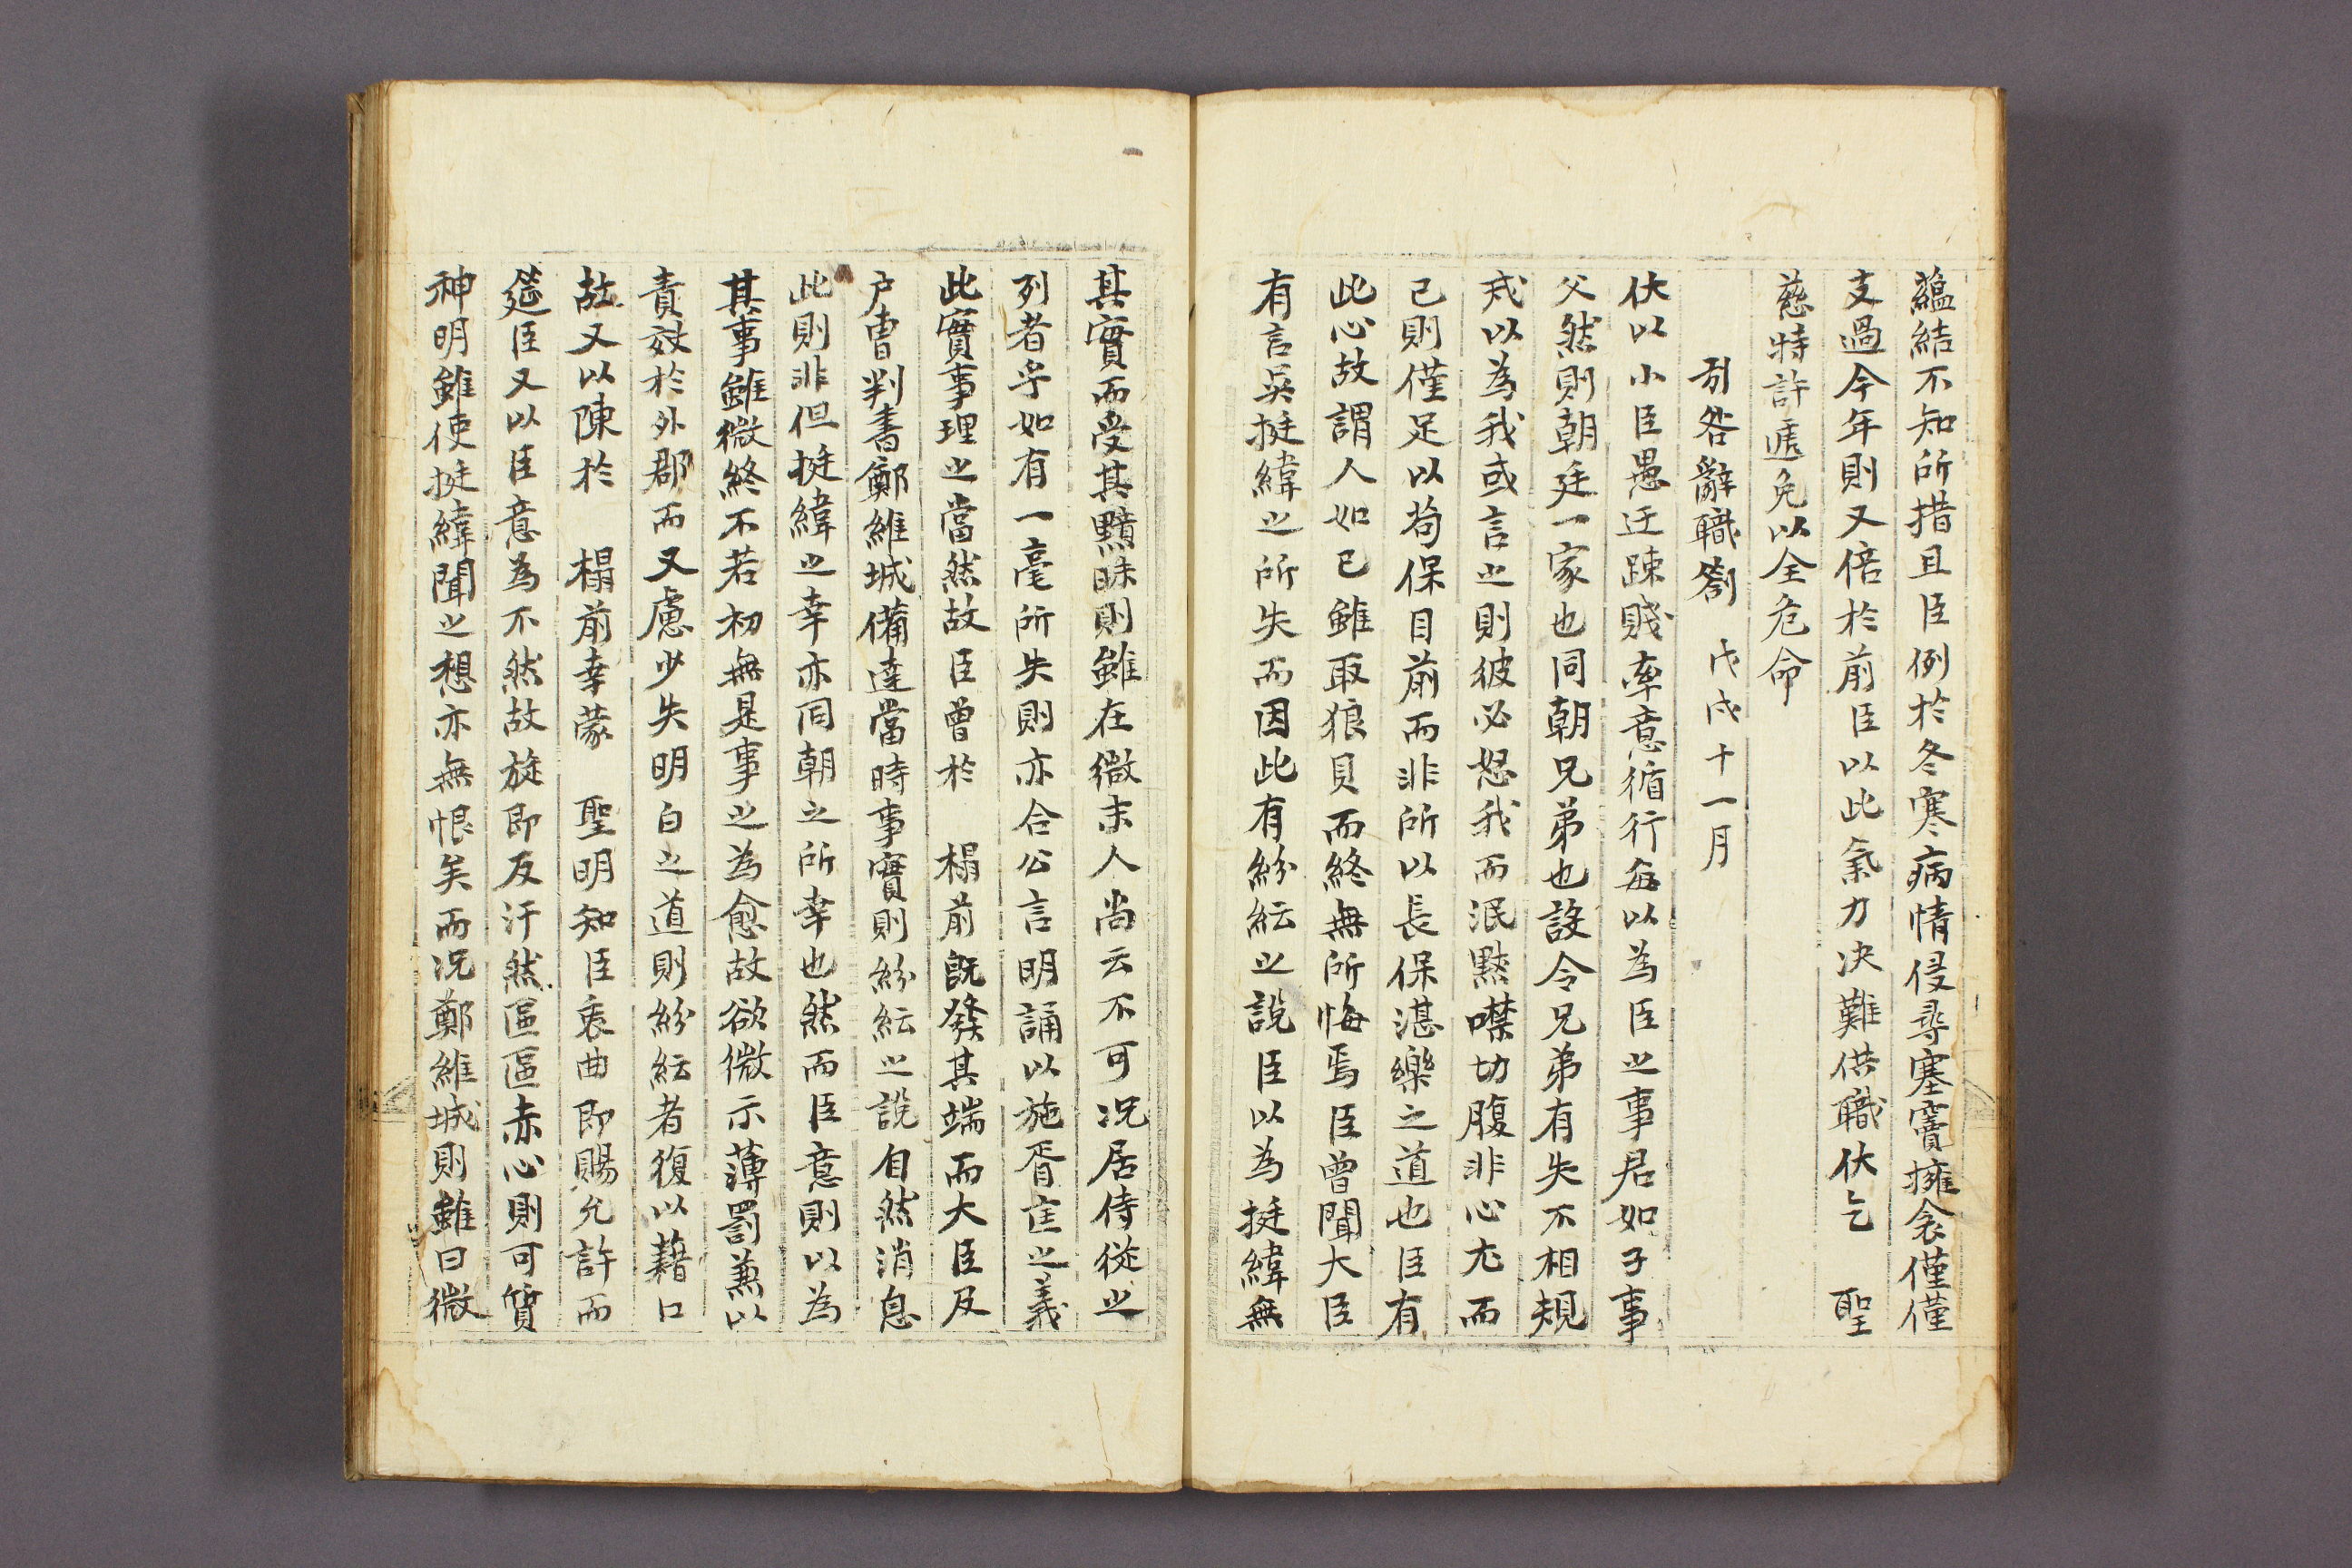 蘊結不知所措且臣例於冬寒病情侵尋塞竇擁衾僅僅
支過今年則又倍於前臣以此氣力决難供職伏乞 聖
慈特許遞免以全危命
引咎辭職劄 戊戌十一月
伏以小臣愚迂踈賤率意循行每以為臣之事君如子事
父然則朝廷一家也同朝兄弟也設令兄弟有失不相規
戒以為我或言之則彼必怒我而泯默噤切腹非心尤而
已則僅足以苟保目前而非所以長保湛樂之道也臣有
此心故謂人如已雖取狼貝而終無所悔焉臣曾聞大臣
有言吳挺緯之所失而因此有紛紜之說臣以為挺緯無
其實而受其黯昧則雖在微末人尚云不可况居侍從之
列者乎如有一毫所失則亦合公言明誦以施胥匡之義
此實事理之當然故臣曾於 榻前旣發其端而大臣及
户曹判書鄭維城備達當時事實則紛紜之說自然消息
此則非但挺緯之幸亦同朝之所幸也然而臣意則以為
其事雖微終不若初無是事之為愈故欲微示薄罰兼以
責效於外郡而又慮少失明白之道則紛紜者復以藉口
故又以陳於 榻前幸蒙 聖明知臣衷曲即賜允許而
筵臣又以臣意為不然故旋即反汗然區區赤心則可質
神明雖使挺緯聞之想亦無恨矣而况鄭維城則雖曰微